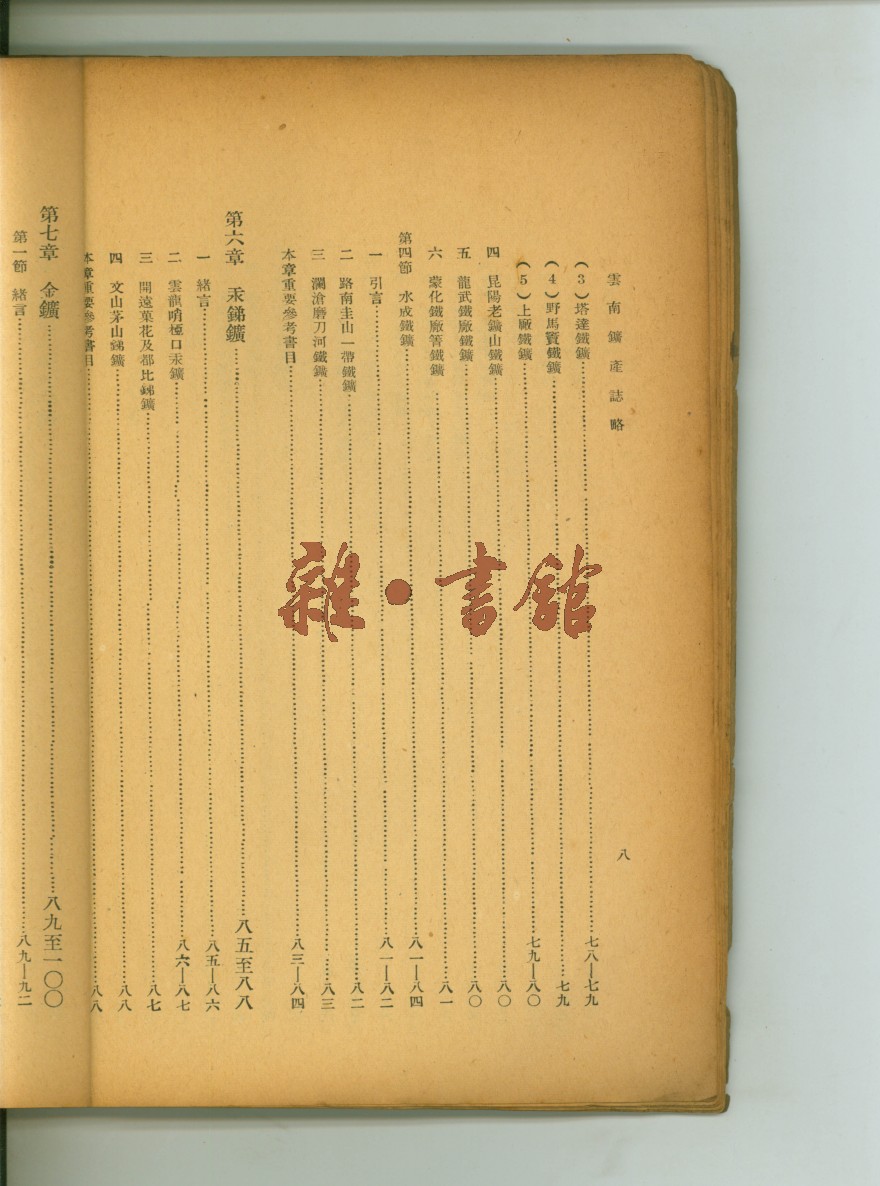 雲南鑛產誌略
八
(3)塔達鐵鑛……七八—七九
(4)野馬寶鐵鑛……七九
(5)上廠鐵鑛……七九—八〇
四 昆陽老鑛山鐵鑛……八〇
五 龍武鐵廠鐵鑛……八〇
六 蒙化鐵廠箐鐵鑛……八一
第四節 水成鐵鑛……八一—八四
一 引言……八一—八二
二 路南圭山一帶鐵鑛……八二
三 瀾滄磨刀河鐵鑛……八三
本章重要參考書目……八三—八四
第六章 汞銻鑛……八五至八八
一 緒言……八五—八六
二 雲龍哨橫口汞鑛……八六—八七
三 開遠菓花及都比銻鑛……八七
四 文山茅山銻鑛……八八
本章重要參考書目……八八
第七章 金鑛……八九至一〇〇
第一節 緒言……八九—九二
雜·書館